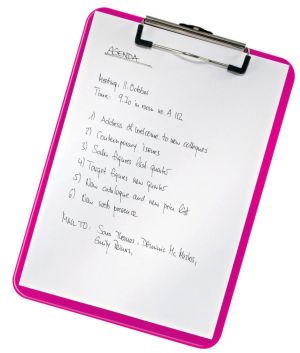 AGENDA
Meeting: 11. October
Time: 9.30 in room no. A 112
1) Address of welcome to new colleagues
2) Contemporary issues
3) Sales figures last quarter
4) Target figures new quarter
5) New catalogue and new price list
6) New web presence
MAIL TO: Sam Thomas, Dominic Mc
Emily